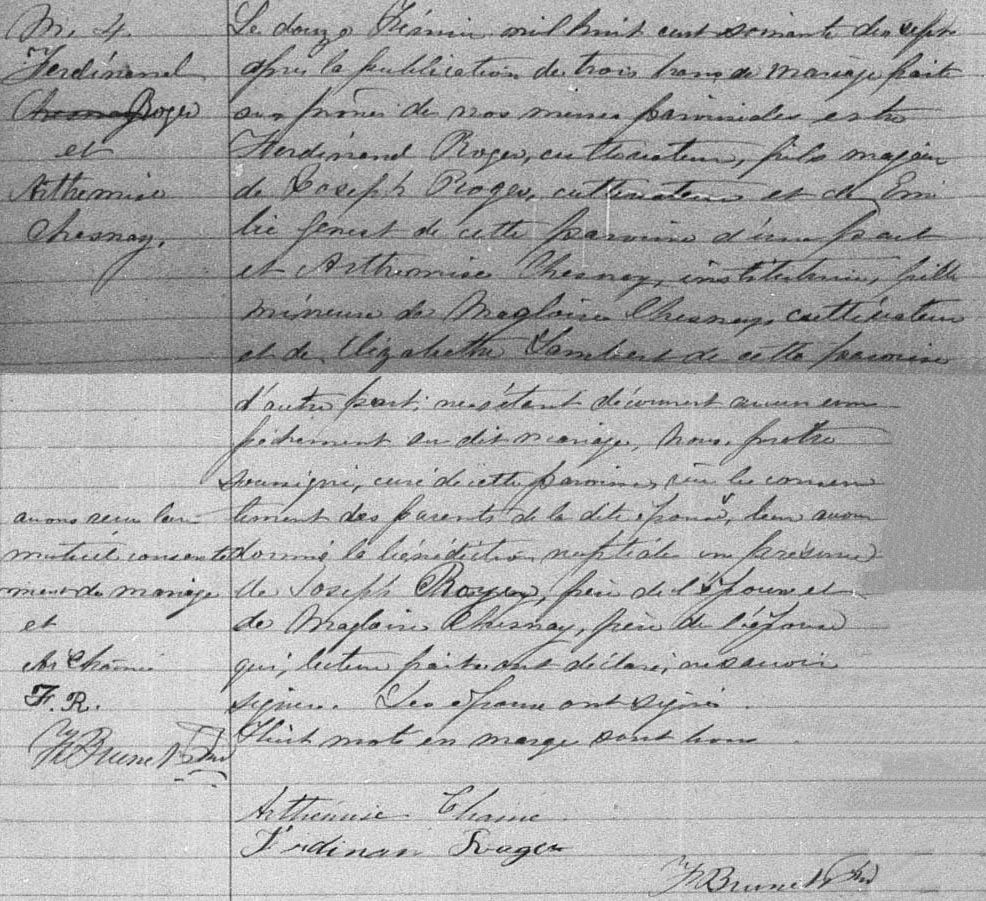 M. 4.
Ferdinand
Chesnay Roger
et
Arthemise
Chesnay.
Le douze Février mil huit cent soixante dix sept
après la publication de trois bans de mariage faite
aux prônes de nos messes paroissiales entre
Ferdinand Roger, cultivateur, fils majeur
de Joseph Roger, cultivateur et de Emi
lie Genest de cette paroisse d'une part
et Arthemise Chesnay, institutrice, fille
mineure de Magloire Chesnay, cultivateur
et de Elizabethe Lambert de cette paroisse
d'autre part; ne s'étant découvert aucun em
pêchement au dit mariage, Nous, prêtre
soussigné, curé de cette paroisse, vu le consen
tement des parents de la dite épouse, leur avons
donné la bénédiction nuptiale en présence
de Joseph Roger, père de l'époux et
de Magloire Chesnay, père de l'épouse
qui, lecture faite ont déclaré ne savoir
signer. Les époux ont signé.
Huit mots en marge sont bons
avons reçu leur
mutuel consente
ment de mariage
et
Ar Chainé
F. R.
Arthémise Chainé
Ferdinan Roger